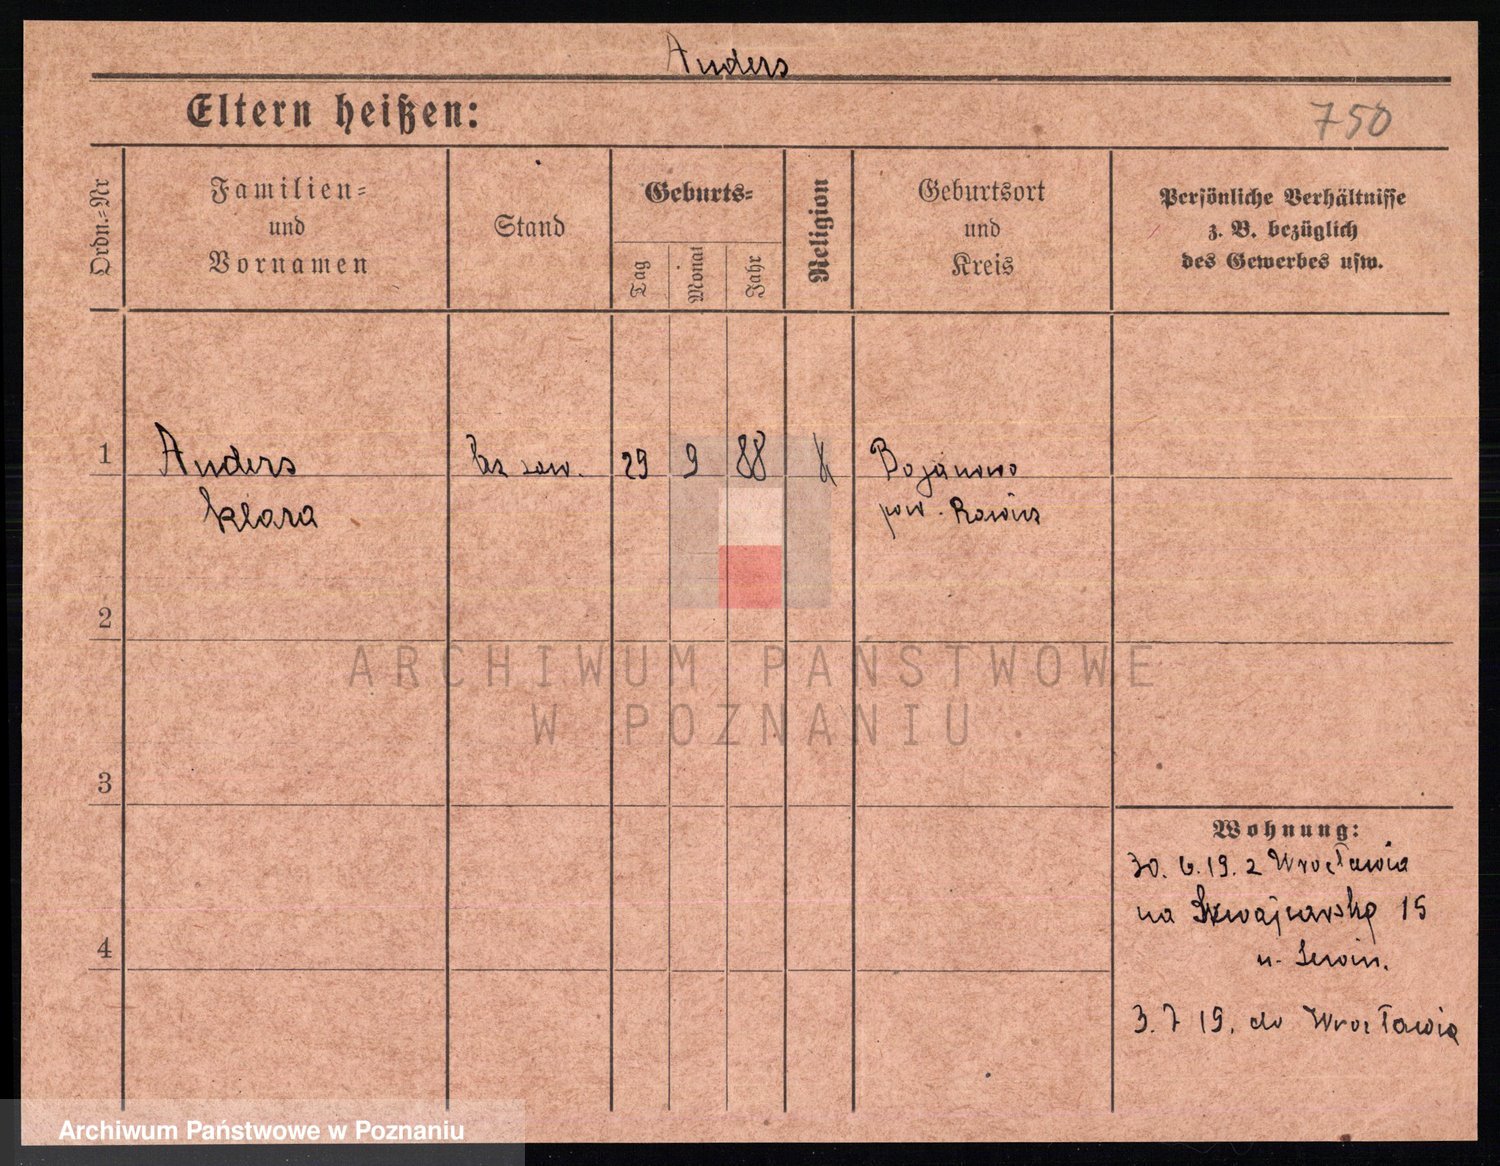 Anders
Eltern heißen:
750
Ordn.=Nr
Familien=
und
Vornamen
Stand
Geburts=
Tag
Monat
Jahr
Religion
Geburtsort
und
Kreis
Persönliche Verhältnisse
z. B. bezüglich
des Gewerbes usw.
1
Anders
Klara
bez zaw.
29
9
88
K
Bojanowo
pow. Rawicz
2
ARCHIWUM PAŃSTWOWE
W POZNANIU
3
Wohnung:
30. 6. 19. z Wrocławia
na Szwajcarską 15
u.
4
3. 7 19. do Wrocławia
Archiwum Państwowe w Poznaniu